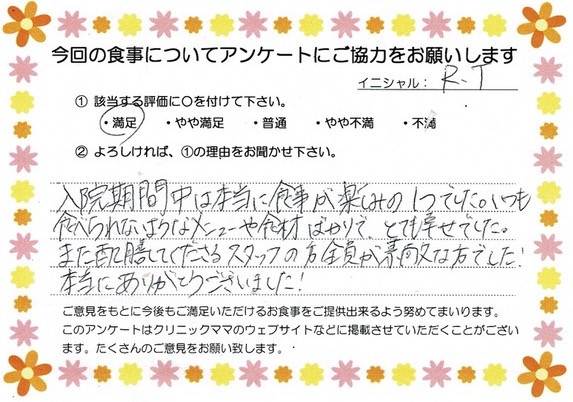 今回の食事についてアンケートにご協力をお願いします
イニシャル： R.T
① 該当する評価に○を付けて下さい。
・満足 ・やや満足 ・普通 ・やや不満 ・不満
② よろしければ、①の理由をお聞かせ下さい。
入院期間中は本当に食事が楽しみの1つでした。いつも
食べられないようなメニューや食材ばかりで、とても幸せでした。
また配膳してくださるスタッフの方全員が素敵な方でした！
本当にありがとうございました！
ご意見をもとに今後もご満足いただけるお食事をご提供出来るよう努めてまいります。
このアンケートはクリニックママのウェブサイトなどに掲載させていただくことがござい
ます。たくさんのご意見をお願い致します。